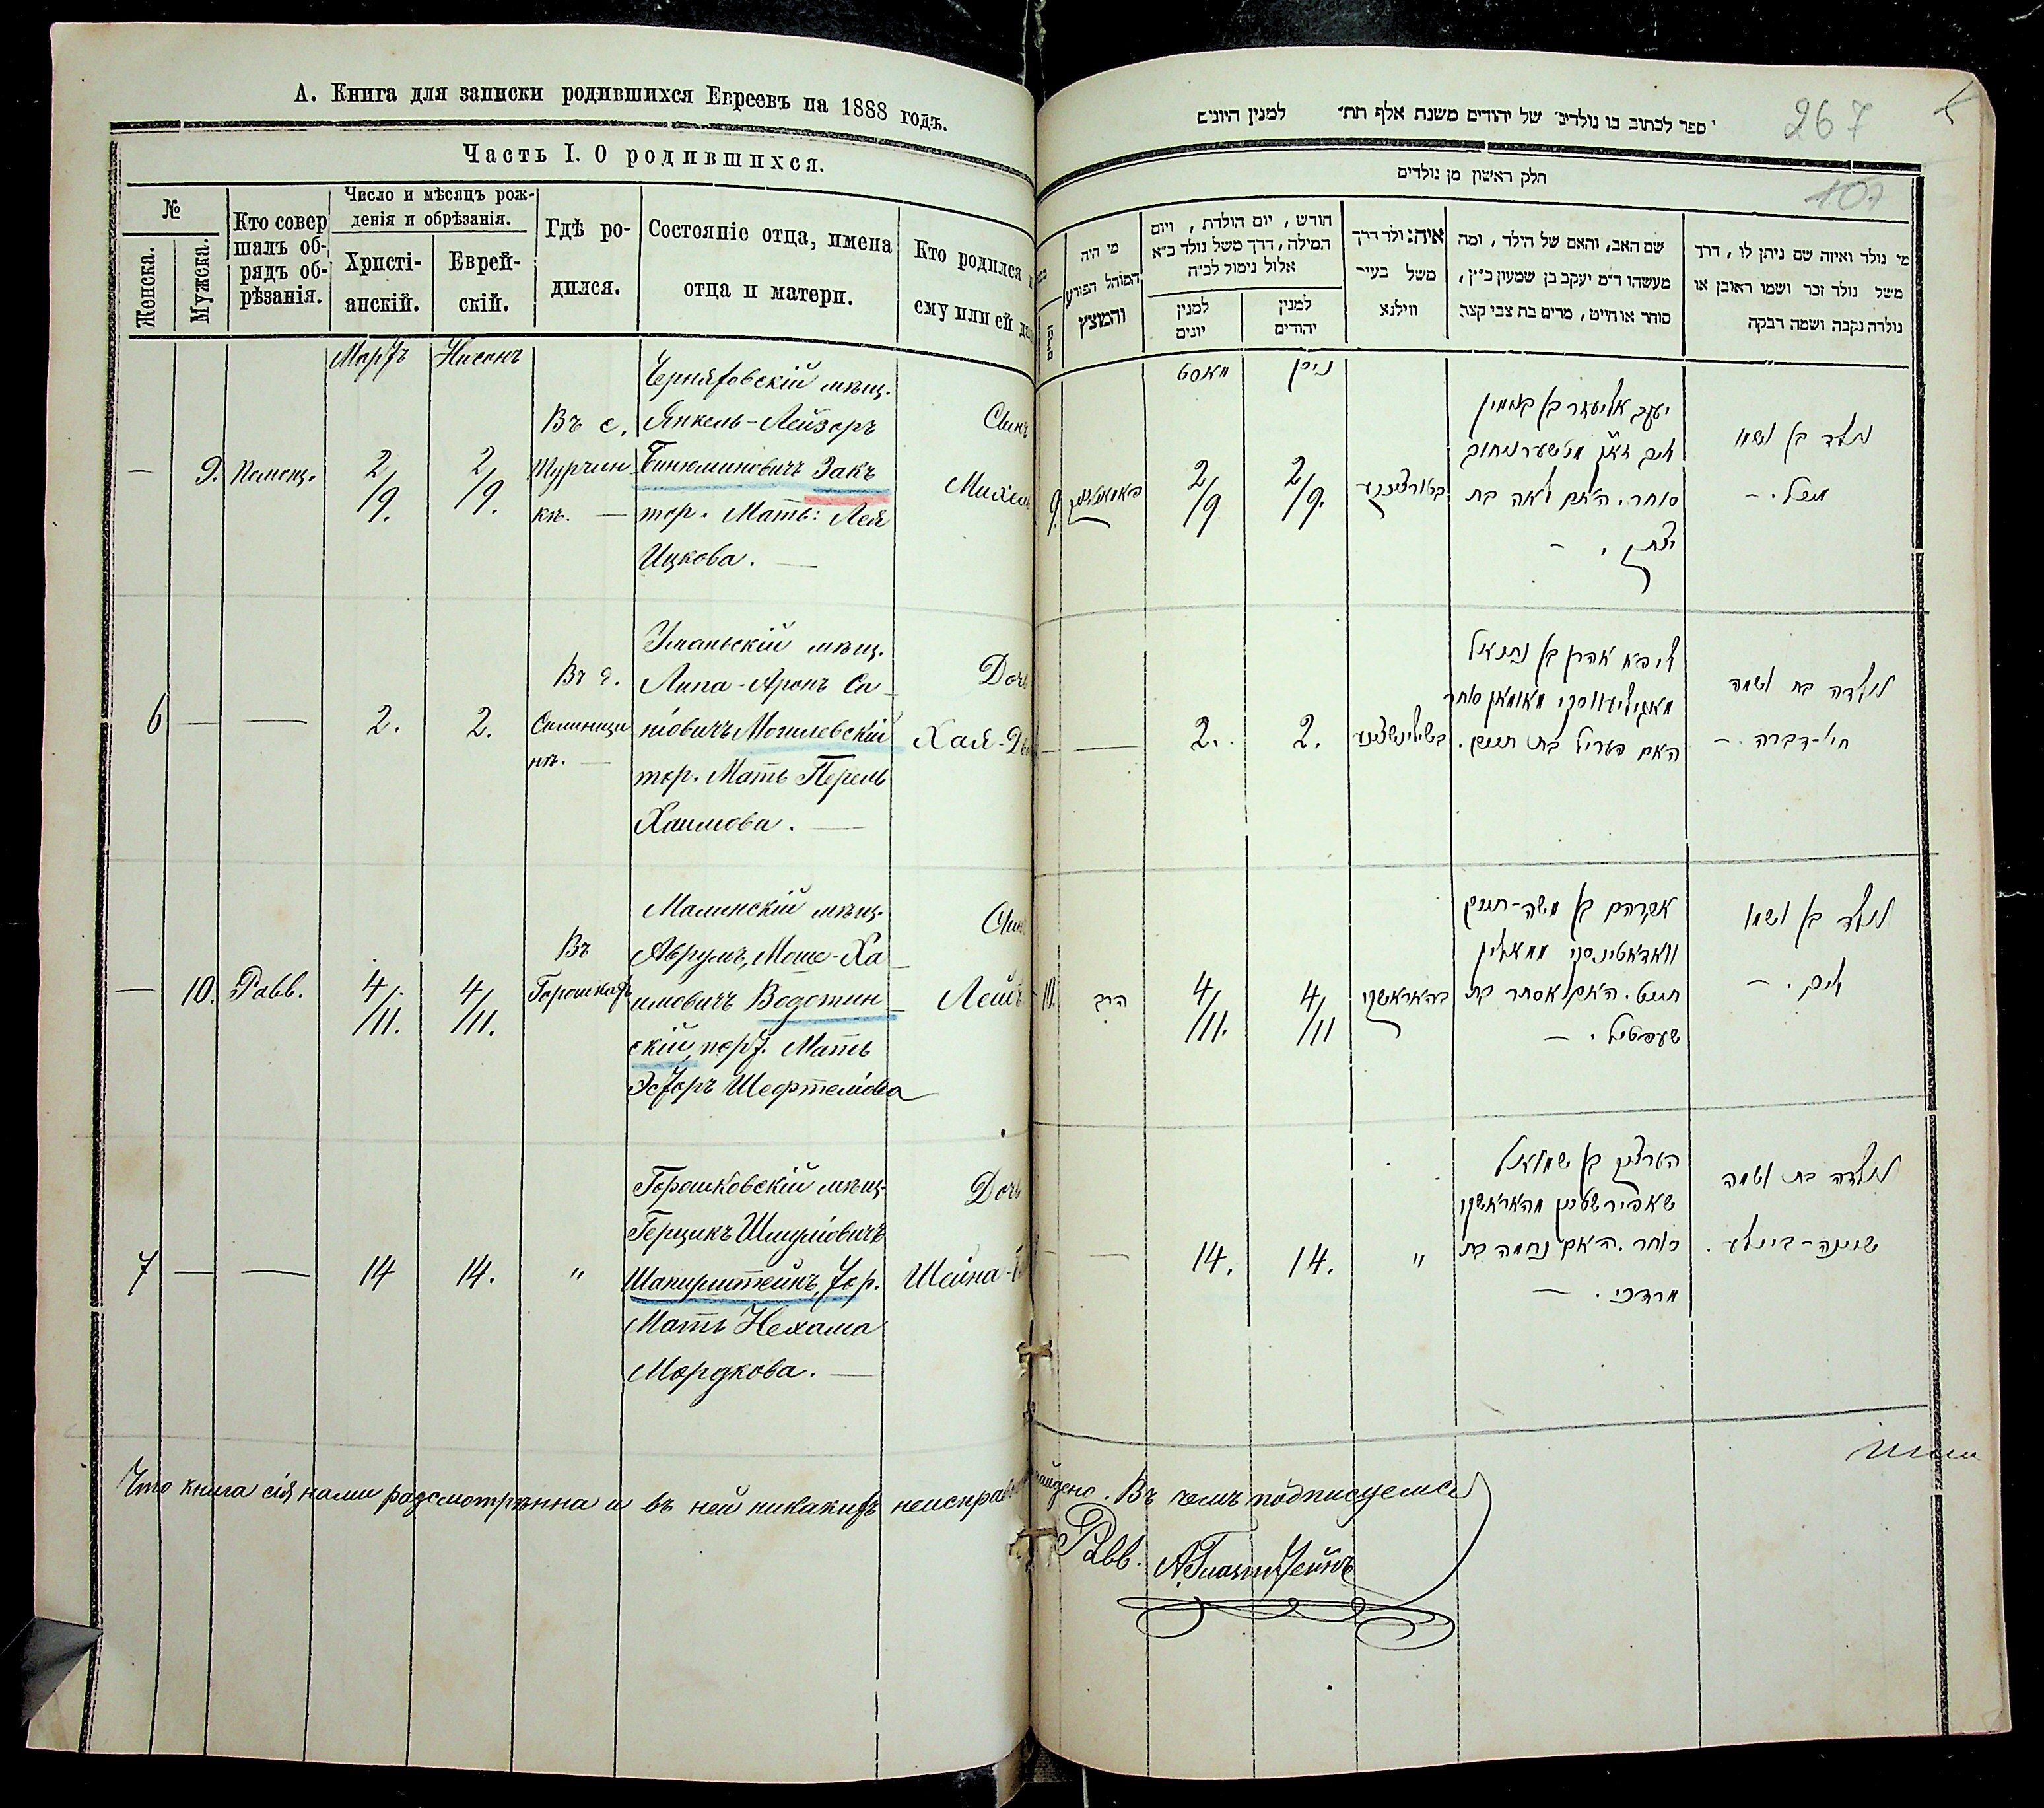 А. Книга для записки родившихся Евреевъ на 1888 годъ.
Часть I. О родившихся.
№
Женска.
Мужска.
Кто совер
шалъ об-
рядъ об-
рѣзанія.
Число и мѣсяцъ рож-
денія и обрѣзанія.
Христі-
анскій.
Еврей-
скій.
Гдѣ ро-
дился.
Состояніе отца, имена
отца и матери.
Кто родился
ему или ей
Мартъ Нисонъ
— 9.
2/9. 2/9.
Въ с.
Черняховскій мѣщ.
Янкель-Лейзеръ
Бинюминовичъ Закъ
тор. Мать: Лея
Ицкова. —
Сынъ
Михель
6 — —
2. 2.
Уманьскій мѣщ.
Липа-Аронъ Са-
ніовичъ Могилевскій
тор. Мать Перель
Хаимова. —
Дочь
Хая-Дв
— 10. Равв.
4/11. 4/11.
Въ
Горошкахъ
Малинскій мѣщ.
Аврумъ, Моше-Ха-
имовичъ Водотин-
скій, порт. Мать
Эстеръ Шефтеліова
Сынъ
Лейбъ
7 — —
14 14. "
Горошковскій мѣщ.
Герцикъ Шмуліовичъ
Шапирштейнъ, тор.
Мать Нехама
Мордкова. —
Дочь
Шейна-
Что книга сія нами разсмотрѣнна и въ ней никакихъ неисправ
267
107
ספר לכתוב בו נולדים של יהודים משנת אלף תת״ למנין היונים
חלק ראשון מן נולדים
מי נולד ואיזה שם ניתן לו, דרך
משל נולד זכר ושמו ראובן או
נולדה נקבה ושמה רבקה
שם האב, והאם של הילד, ומה
מעשהו ד״מ יעקב בן שמעון כ״ץ,
סוחר או חייט, מרים בת צבי קצר.
איה: ולד דרך
משל בעיר
ווילנא
חודש, יום הולדת, ויום
המילה, דרך משל נולד כ״א
אלול נימול לכ״ח
למנין
יהודים
למנין
יונים
מי היה
המוהל הפורע
והמוצץ
ניסן
מארט
נולד בן ושמו
מיכל. —
יעקב אליעזר בן בנימין
סוחר. האם לאה בת
יצחק. —
2/9. 2/9 9.
נולדה בת ושמה
חי׳-דברה —
ליפא אהרן בן נתנאל
מאגיליעווסקי מאומאן סוחר
האם פעריל בת חיים.
2. 2. — —
נולד בן ושמו
ליב. —
אברהם בן משה-חיים
וואדאטינסקי ממאלין
חייט. האם אסתר בת
שעפטיל. —
בהאראשקי
4/11 4/11. הרב 10.
נולדה בת ושמה
שיינה-ביילע.
הערציק בן שמואל
שאפירשטיין מהאראשקי
סוחר. האם נחמה בת
מרדכי. —
" 14. 14. —
найдено. Въ чемъ подписуемся
Равв.